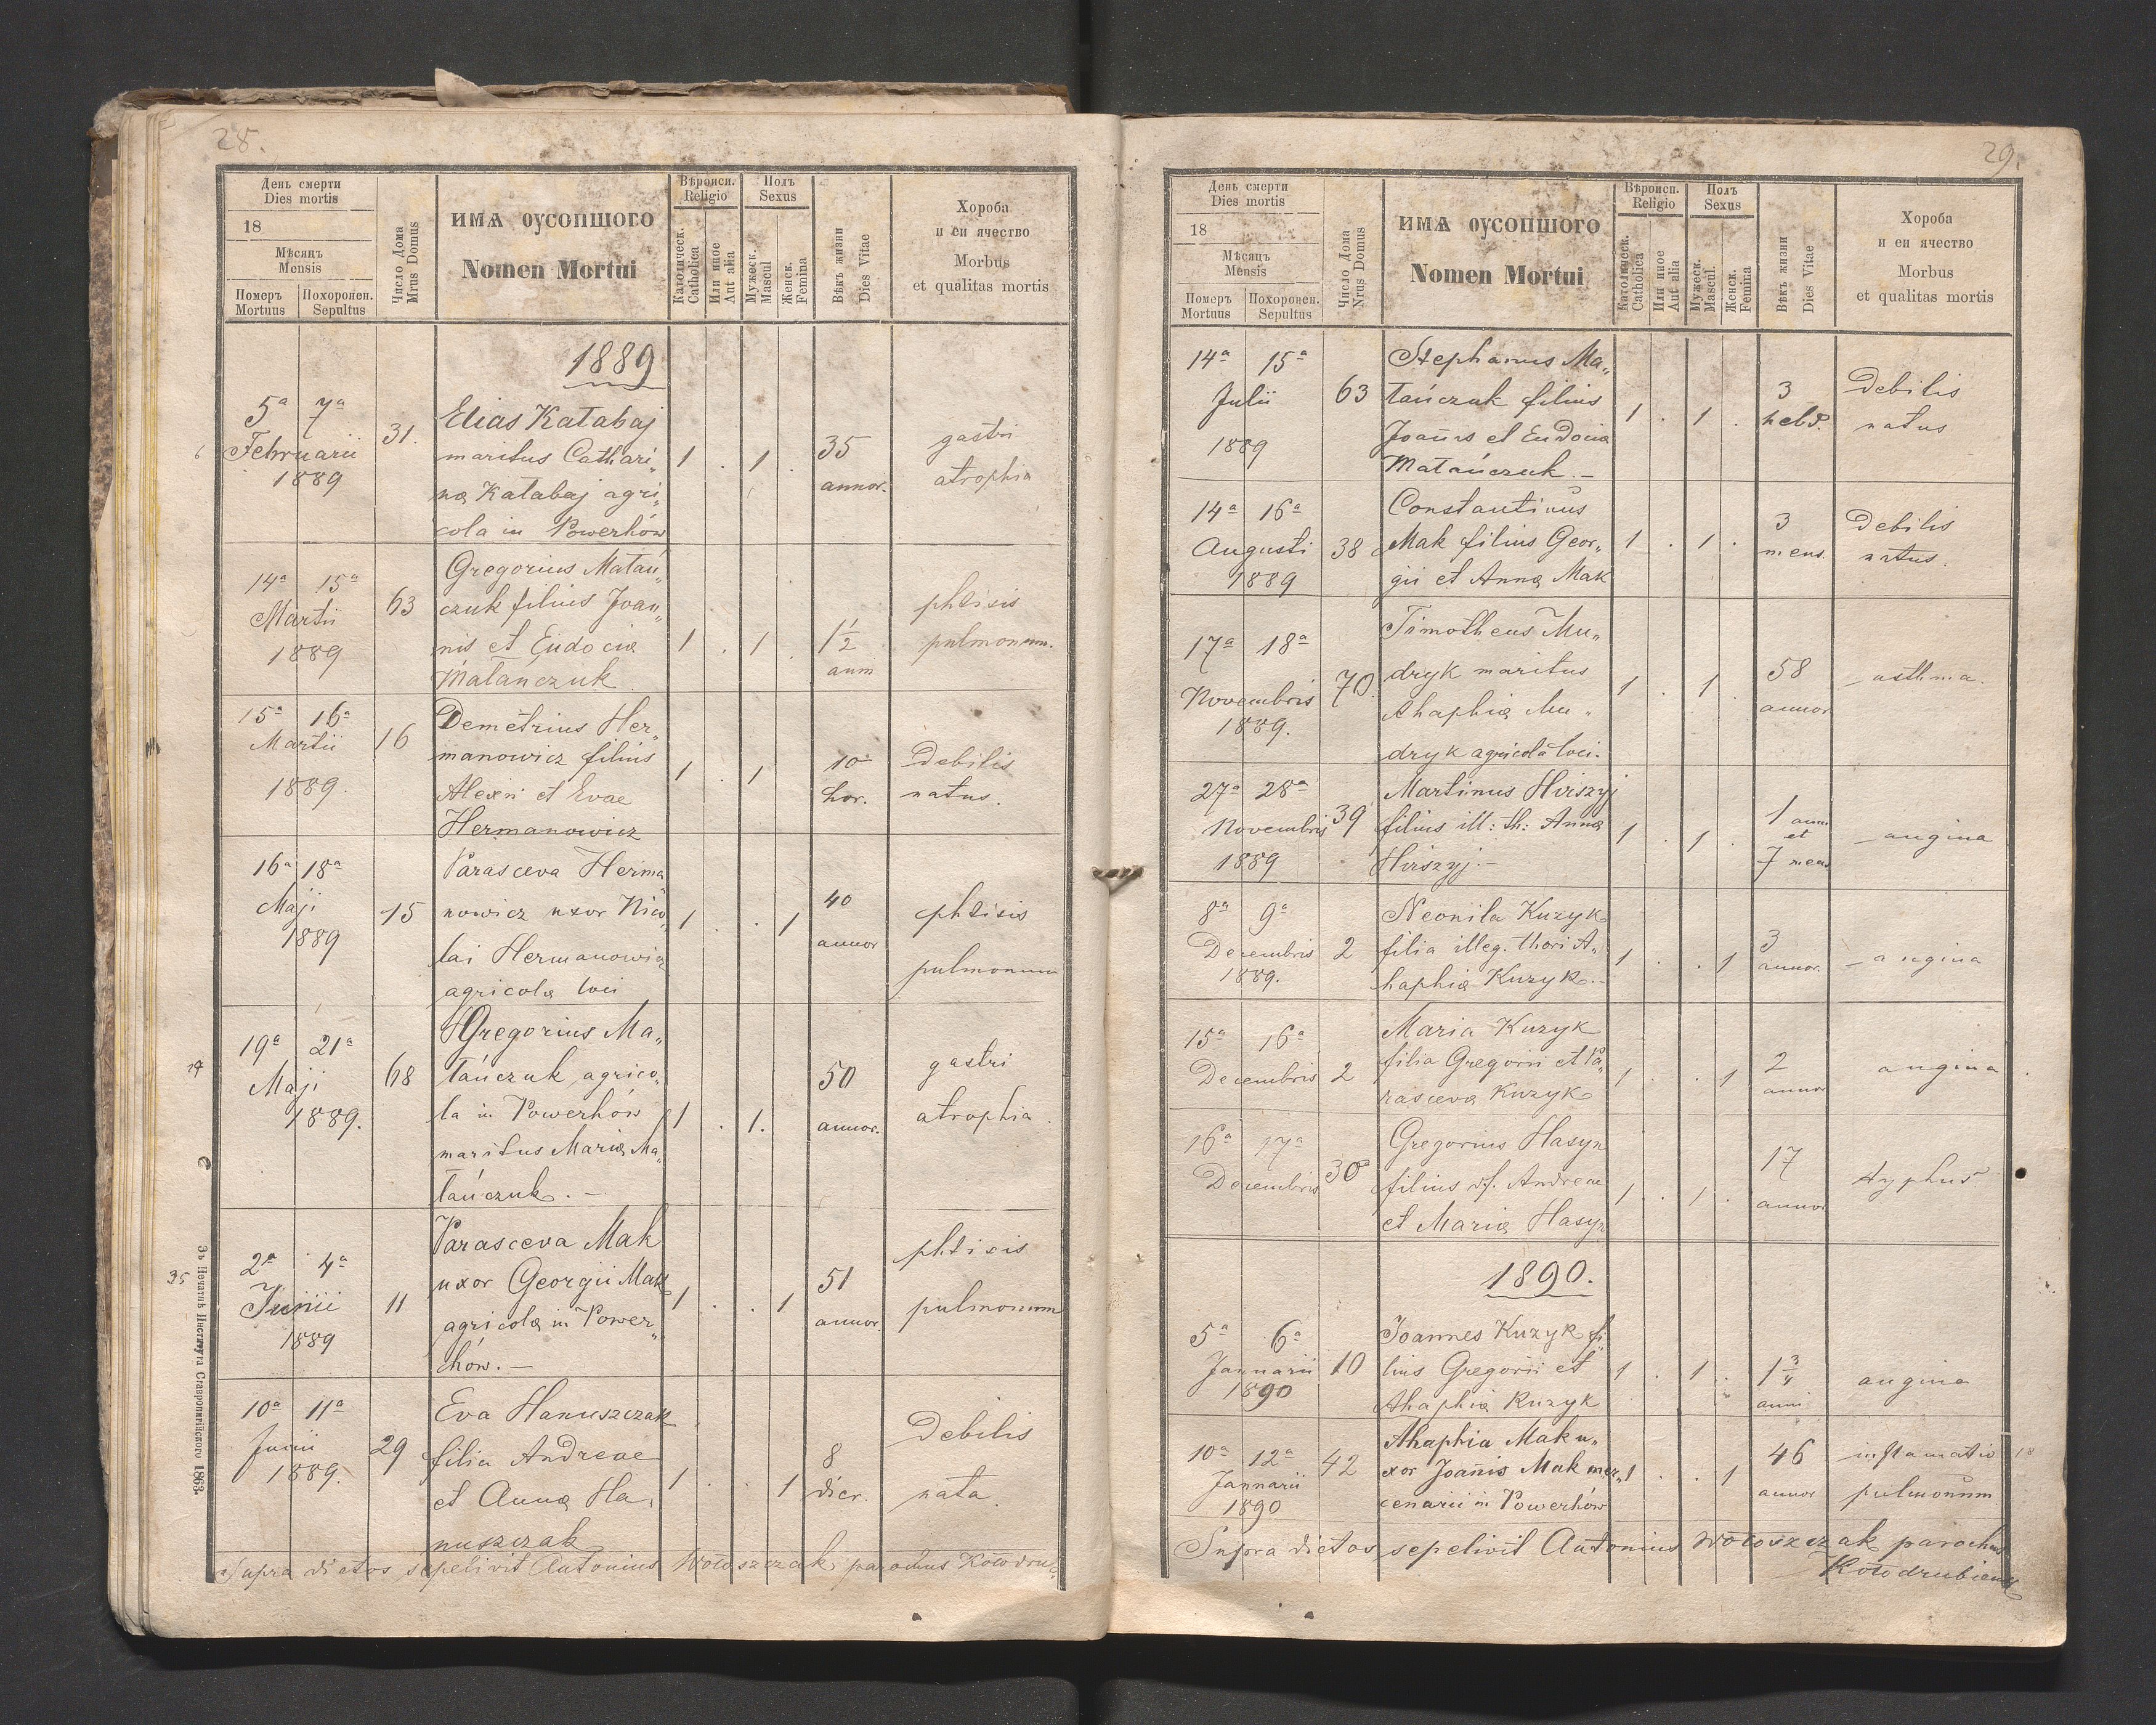 28.
День смерти
Dies mortis
18
Мѣсяць
Mensis
Померъ
Mortuus
Похоронен.
Sepultus
Число Дома
Mrus Domus
ИМѦ ОУСОПШОГО
Nomen Mortui
Вѣроисп.
Religio
Католическ.
Catholica
Или иное
Aut alia
Полъ
Sexus
Мужеск.
Mascul.
Женск.
Femina
Вѣкъ жизни
Dies Vitae
Хороба
и еи ячество
Morbus
et qualitas mortis
1889
5ª 7ª
Februarii
1889
31.
Elias Katabaj
maritus Cathari„
næ Katabaj agri„
cola in Powerhów
1 . 1 .
35
annor.
gastri
atrophia
14ª 15ª
Martii
1889
63
Gregorius Matań„
czuk filius Joan„
nis et Eudociæ
Matańczuk
1 . 1 .
1 1/2
ann
phtisis
pulmonum.
15ª 16ª
Martii
1889.
16
Demetrius Her„
manowicz filius
Alexii et Evae
Hermanowicz
1 . 1
10
hor.
Debilis
natus.
16ª 18ª
Maji
1889
15
Parasceva Herma„
nowicz uxor Nico„
lai Hermanowicz
agricolæ loci
1 . . 1
40
annor
phtisis
pulmonum
19ª 21ª
Maji
1889.
68
Gregorius Ma„
tańczuk agrico„
la in Powerhów
maritus Mariæ Ma„
tańczuk. –
1 . 1.
50
annor.
gastri
atrophia.
35
2ª 4ª
Junii
1889
11
Parasceva Mak
uxor Georgii Mak
agricolæ in Power„
hów. –
1 . . 1
51
annor.
phtisis
pulmonum
10ª 11ª
Junii
1889.
29
Eva Hanuszczak
filia Andreae
et Annæ Ha„
nuszczak
1 . . 1
8
dier.
Debilis
nata.
Supra dictos sepelivit Antonius Wołoszczak parochus Kołodru„
Зъ Печатнѣ Института Ставропигійского 1863.
29.
День смерти
Dies mortis
18
Мѣсяць
Mensis
Померъ
Mortuus
Похоронен.
Sepultus
Число Дома
Nrus Domus
ИМѦ ОУСОПШОГО
Nomen Mortui
Вѣроисп.
Religio
Католическ.
Catholica
Или иное
Aut alia
Полъ
Sexus
Мужеск.
Mascul.
Женск.
Femina
Вѣкъ жизни
Dies Vitae
Хороба
и еи ячество
Morbus
et qualitas mortis
14ª 15ª
Julii
1889
63
Stephanus Ma„
tańczuk filius
Joañis et Eudociæ
Matańczuk. –
1 . 1 .
3
hebd.
Debilis
natus
14ª 16ª
Augusti
1889
38
Constantinus
Mak filius Geor„
gii et Annæ Mak
1 . 1 .
3
mens.
Debilis
natus.
17ª 18ª
Novembris
1889.
70.
Timotheus Mu„
dryk maritus
Ahaphiæ Mu„
dryk agricola loci.
1 . 1 .
58
annor
asthma.
27ª 28ª
Novembris
1889
39
Martinus Hirszyj
filius ill: th: Annæ
Hirszyj. –
1 . 1 .
1 anni
et
7 mens
angina
8ª 9ª
Decembris
1889.
2
Neonila Kuzyk
filia illeg. thori A„
haphiæ Kuzyk. –
1 . . 1
3
annor.
angina
15ª 16ª
Decembris
2
Maria Kuzyk
filia Gregorii et Pa„
rascevæ Kuzyk
1 . . 1
2
annor
angina.
16ª 17ª
Decembris
30
Gregorius Hasyn
filius df. Andreae
et Mariæ Hasyn
1 . 1 .
17
annor
typhus
1890.
5ª 6ª
Januarii
1890
10
Joannes Kuzyk fi„
lius Gregorii et
Ahaphiæ Kuzyk
1 . 1 .
1 3/4
anni
angina
10ª 12ª
Januarii
1890
42
Ahaphia Mak u„
xor Joañis Mak mer„
cenarii in Powerhów
1 . . 1
46
annor
inflamatio
pulmonum
18
Supra dictos sepelivit Antonius Wołoszczak parochus
Kołodrubiens